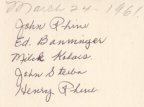 March 24, 1961
John Rhine
Ed. Banninger
Mitch Kohais
John Steebn
Henry Rhine